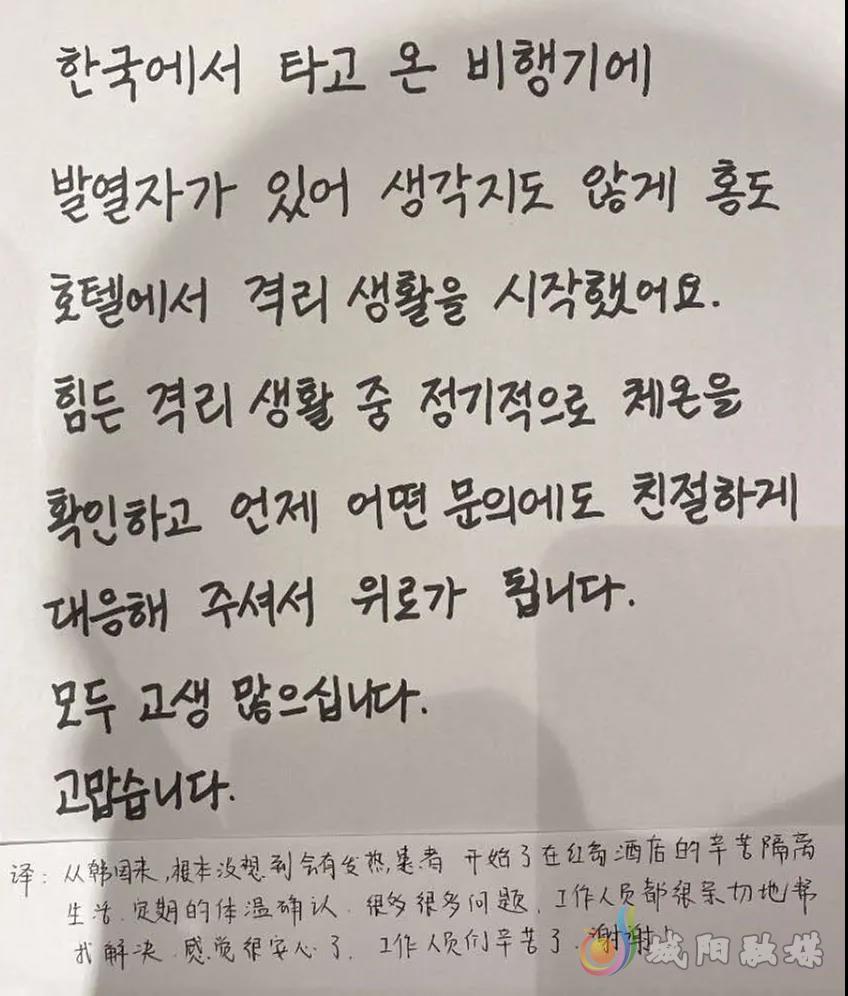 한국에서 타고 온 비행기에
발열자가 있어 생각지도 않게 홍도
호텔에서 격리 생활을 시작했어요.
힘든 격리 생활 중 정기적으로 체온을
확인하고 언제 어떤 문의에도 친절하게
대응해 주셔서 위로가 됩니다.
모두 고생 많으십니다.
고맙습니다.
译：从韩国来，根本没想到会有发热患者 开始了在红岛酒店的辛苦隔离
生活.定期的体温确认.很多很多问题.工作人员都很亲切地帮
我解决.感觉很安心了.工作人员们辛苦了.谢谢！
城阳融媒